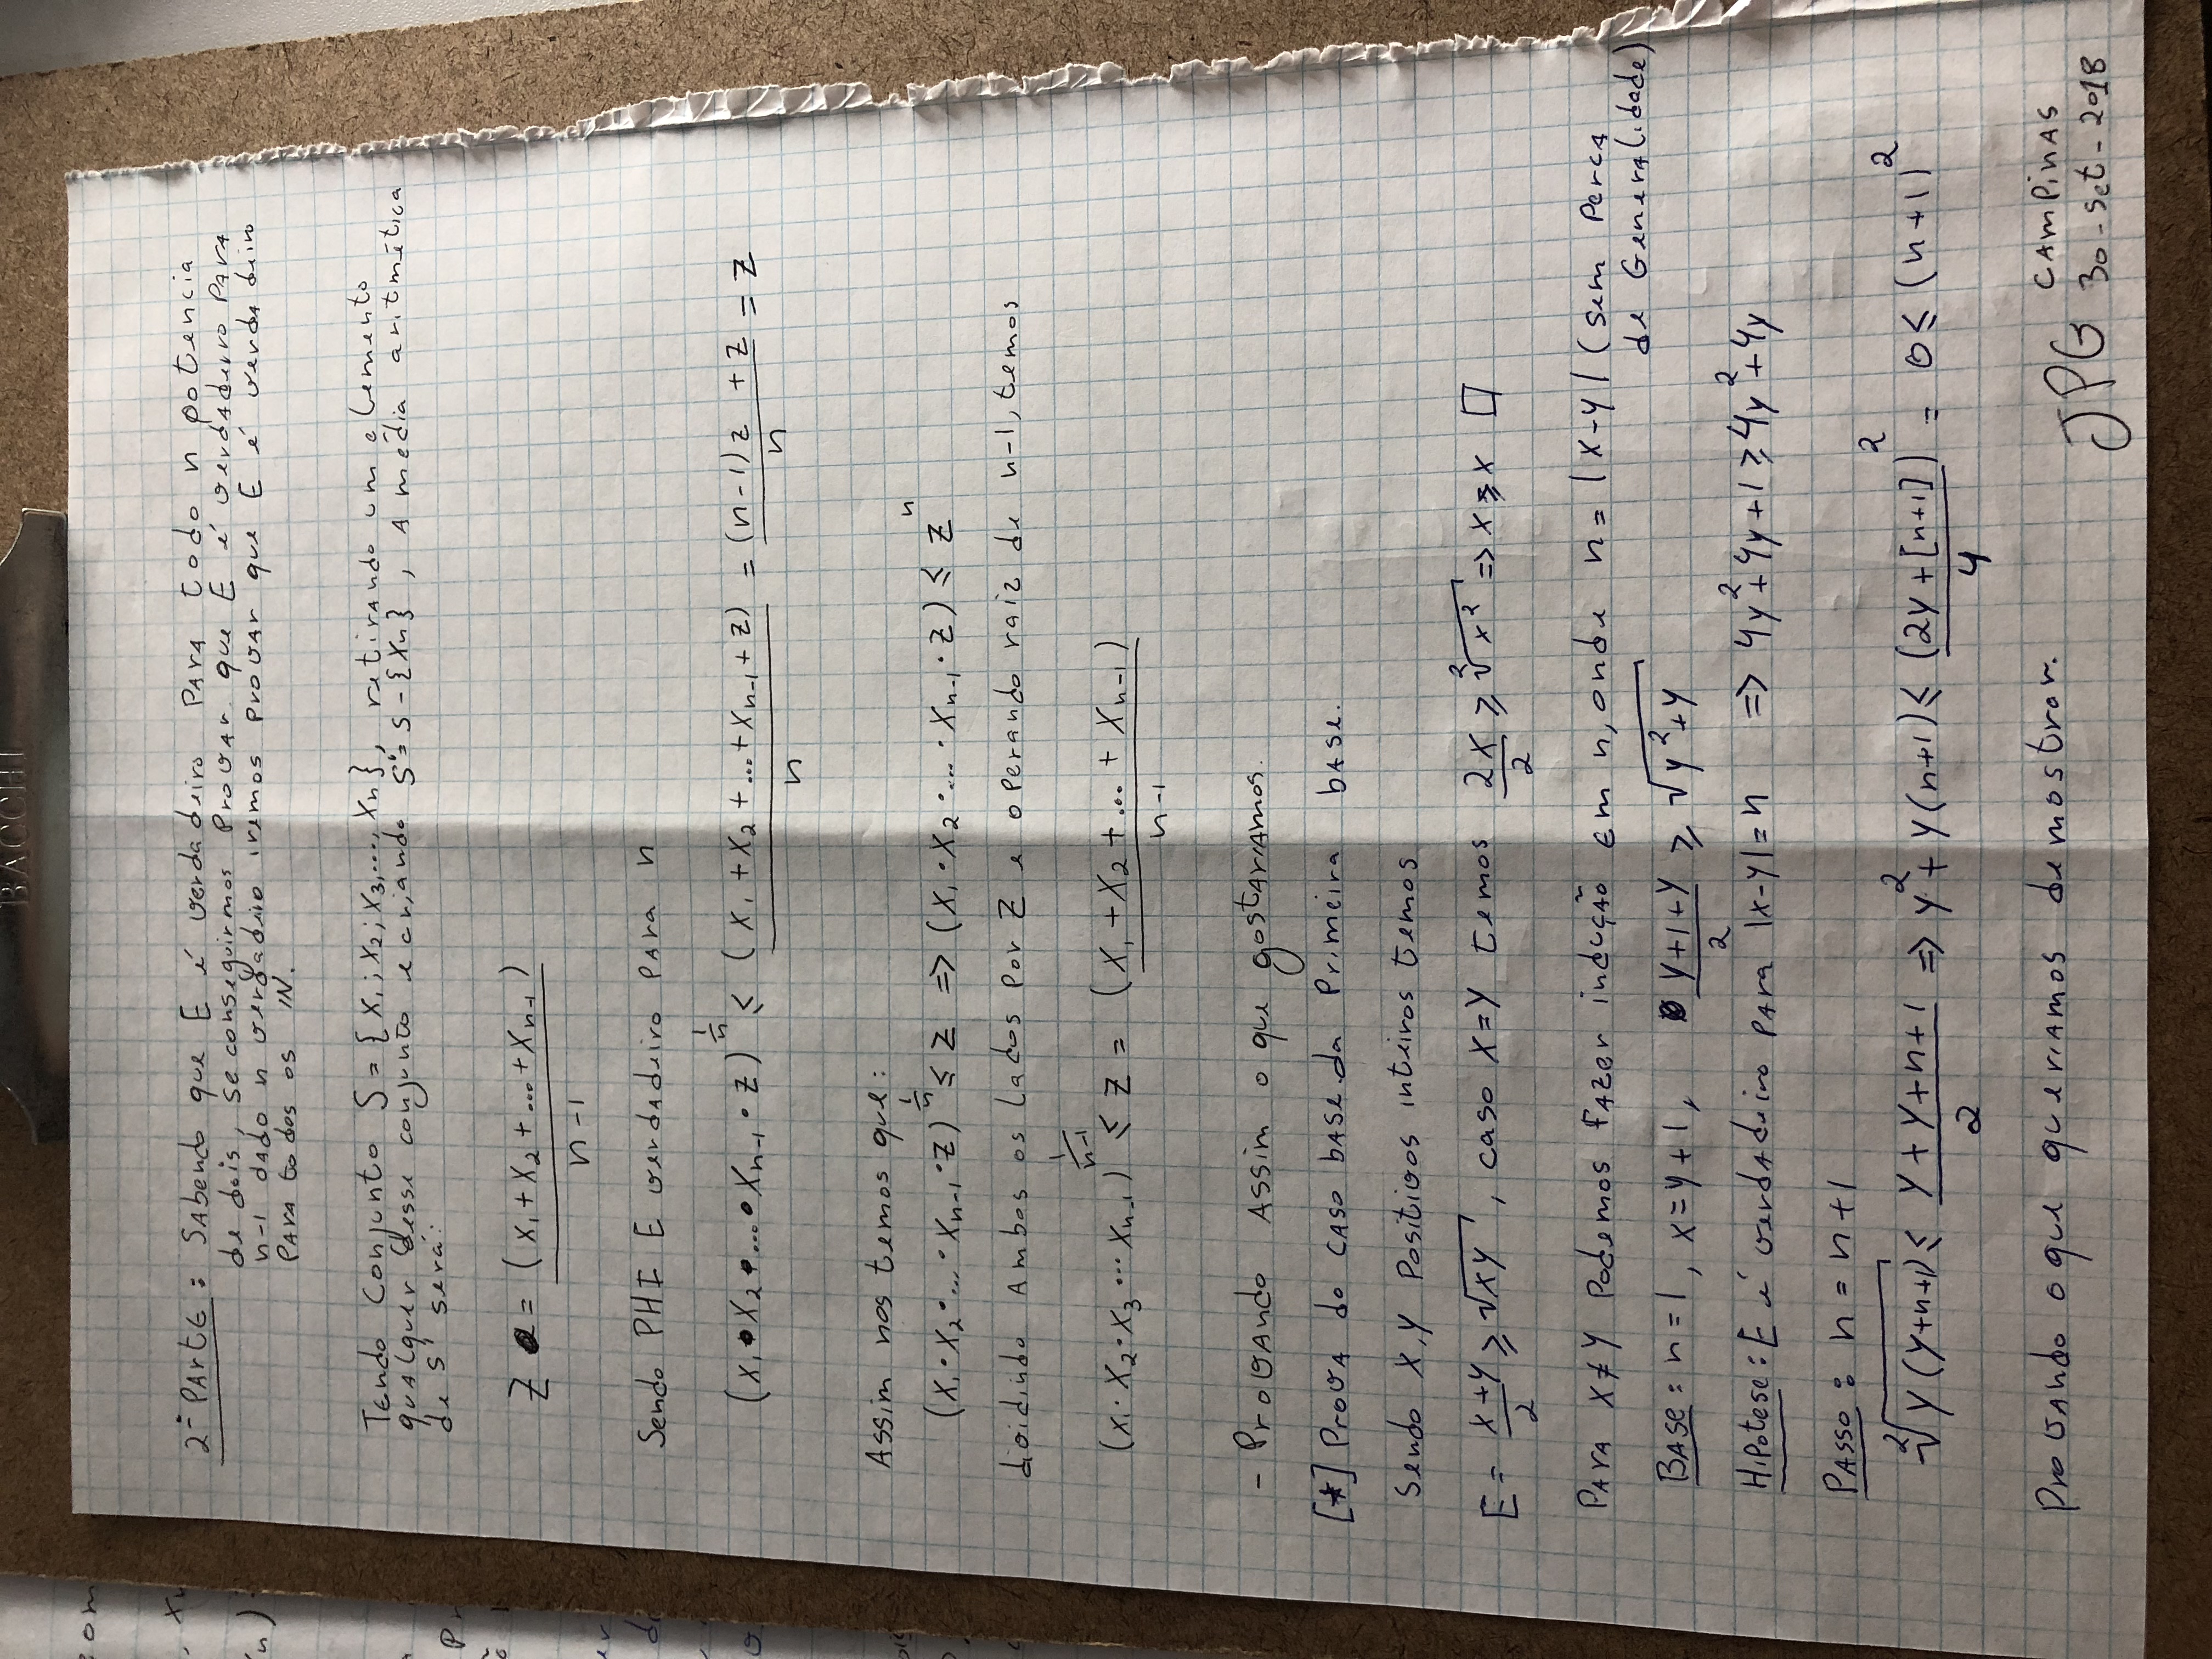 BACCHI
2ª Parte: Sabendo que E é verdadeiro para todo n potencia
de dois, se conseguirmos provar que E é verdadeiro para
n-1 dado n verdadeiro iremos provar que E é verdadeiro
para todos os IN.
Tendo conjunto S = {x₁; x₂; x₃,..., xₙ}, retirando um elemento
qualquer desse conjunto e criando S' = S - {xₙ}, a média aritmética
de S' será:
Z = (x₁ + x₂ + ... + xₙ₋₁) / n-1
Sendo PHI E verdadeiro para n
(x₁ • x₂ • ... • xₙ₋₁ • z)^(1/n) ≤ (x₁ + x₂ + ... + xₙ₋₁ + z) / n = (n-1)z + z / n = z
Assim nos temos que:
(x₁ • x₂ • ... • xₙ₋₁ • z)^(1/n) ≤ z => (x₁ • x₂ • ... • xₙ₋₁ • z) ≤ zⁿ
dividindo ambos os lados por z e operando raiz de n-1, temos
(x₁ • x₂ • x₃ ... xₙ₋₁)^(1/(n-1)) ≤ z = (x₁ + x₂ + ... + xₙ₋₁) / n-1
- Provando assim o que gostariamos.
[*] Prova do caso base da primeira base.
Sendo x, y positivos inteiros temos
E = x+y / 2 ≥ √xy, caso x=y temos 2x / 2 ≥ ²√x² => x ≥ x □
Para x≠y podemos fazer indução em n, onde n = |x-y| (sem perca
de generalidade)
Base: n=1, x=y+1, y+1+y / 2 ≥ √y²+y
Hipotese: E é verdadeiro para |x-y|=n => 4y²+4y+1 ≥ 4y²+4y
Passo: n = n+1
²√y(y+n+1) ≤ y+y+n+1 / 2 => y² + y(n+1) ≤ (2y+[n+1])² / 4 = 0 ≤ (n+1)²
Provando o que queriamos demostrar.
JPG
Campinas
30-set-2018